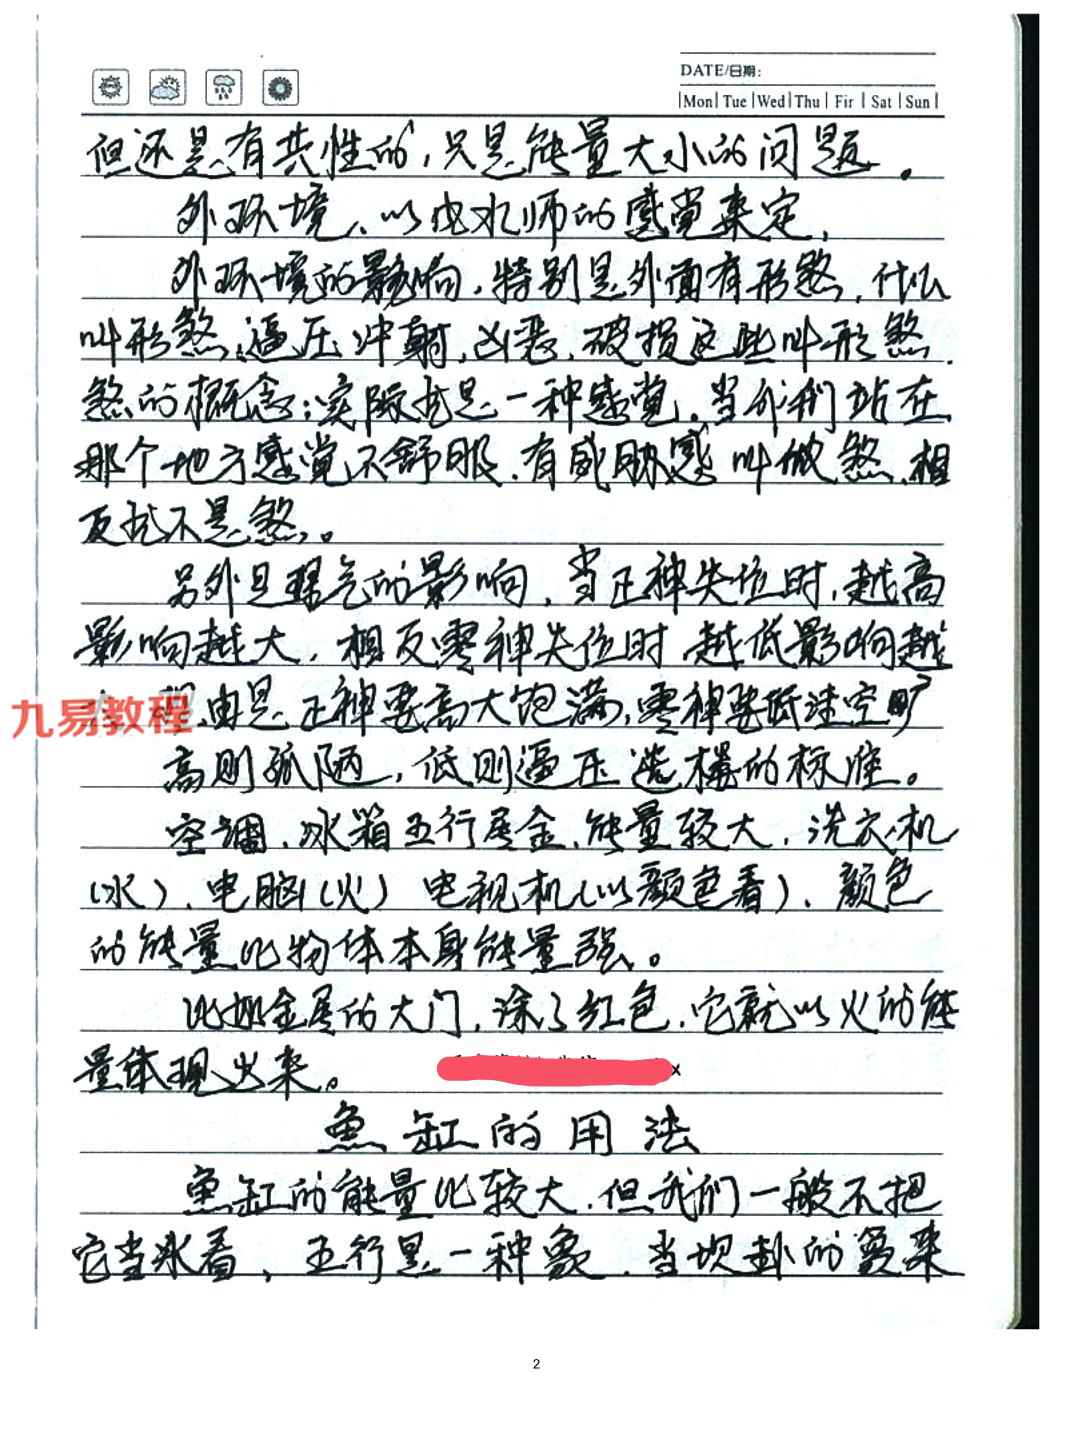 DATE/日期:
Mon Tue Wed Thu Fir Sat Sun
但还是有共性的，只是能量大小的问题。
外环境、以风水师的感觉来定，
外环境的影响，特别是外面有形煞，什么
叫形煞，逼压冲射，凶恶，破损这些叫形煞，
煞的概念：实际也是一种感觉，当我们站在
那个地方感觉不舒服，有威胁感叫做煞，相
反就不是煞。
另外是理气的影响，当正神失位时，越高
影响越大，相反零神失位时 越低影响越
九易教程
由是正神要高大饱满，零神要低洼空旷
高则孤陋，低则逼压 选楼的标准。
空调、冰箱五行属金，能量较大，洗衣机
（水）、电脑（火） 电视机（以颜色看）、颜色
的能量比物体本身能量强。
比如金属的大门，涂了红色，它就以火的能
量体现出来。
x
鱼缸的用法
鱼缸的能量比较大，但我们一般不把
它当水看，五行是一种象，当坎卦的象来
2